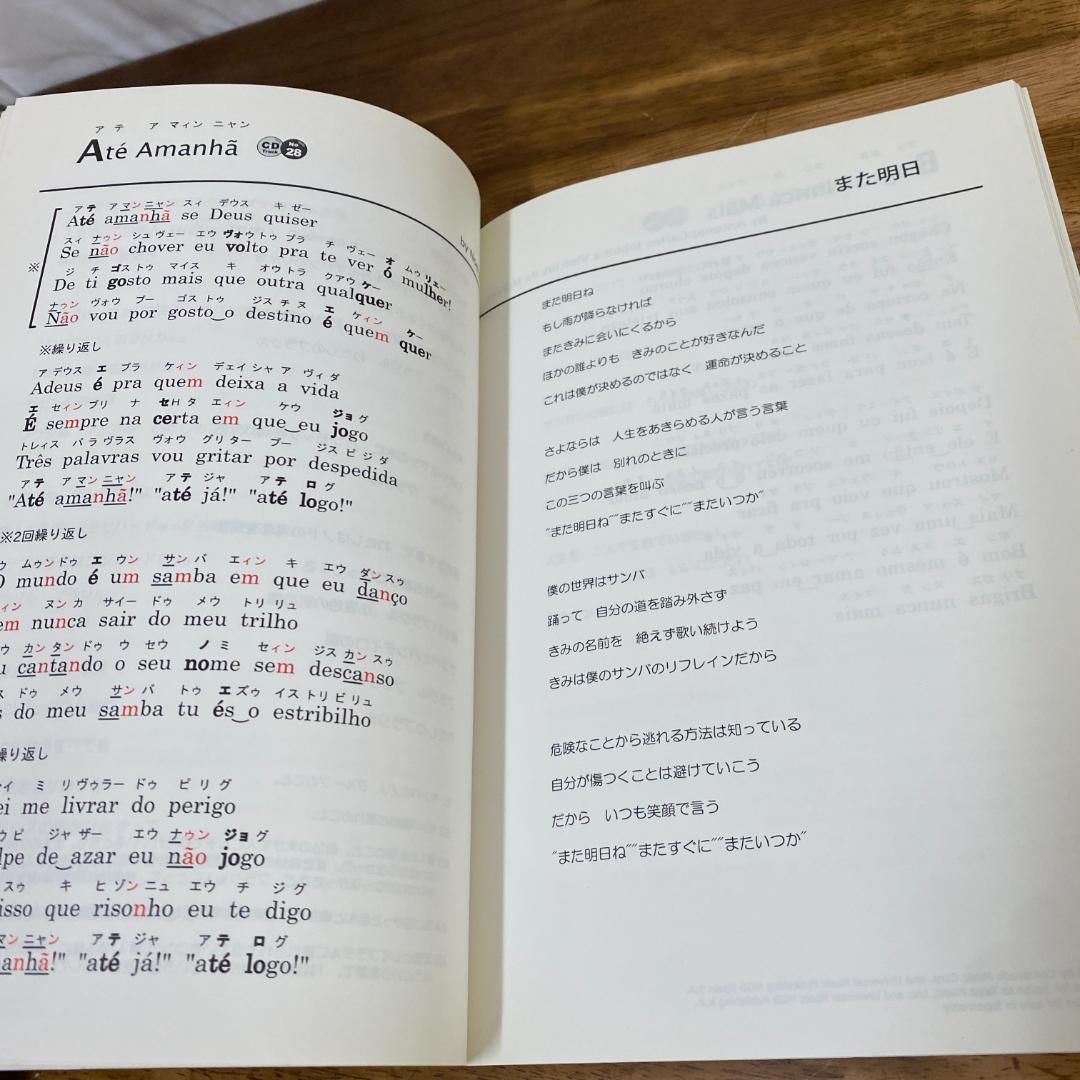 アテ アマィンニャン
Até Amanhã CD Track No 28
アテ アマンニャン スィ デウス キゼー
Até amanhã se Deus quiser
スィ ナゥン シュヴェー エウ ヴォウトゥ プラ チ ヴェー オ ムゥリェー
Se não chover eu volto pra te ver ó mulher!
※
ジ チ ゴストゥ マイス キ オウトラ クアウケー
De ti gosto mais que outra qualquer
ナゥン ヴォウ プー ゴストゥ ジスチヌ エ ケィン ケー
Não vou por gosto‿o destino é quem quer
※繰り返し
アデウス エ プラ ケィン デェイシャ ア ヴィダ
Adeus é pra quem deixa a vida
エ セィンプリ ナ セHタ エィン ケウ ジョグ
É sempre na certa em que‿eu jogo
トレィス パラヴラス ヴォウ グリター プー ジスピジダ
Três palavras vou gritar por despedida
アテ アマンニャン アテ ジャ アテ ログ
"Até amanhã!" "até já!" "até logo!"
※2回繰り返し
ムゥンドゥ エ ウン サンバ エィン キ エウ ダンスゥ
O mundo é um samba em que eu danço
ヌンカ サイー ドゥ メウ トリリュ
em nunca sair do meu trilho
カンタンドゥ ウ セウ ノミ セィン ジスカンスゥ
cantando o seu nome sem descanso
ドゥ メウ サンバ トゥ エズゥ イストリビリュ
do meu samba tu és‿o estribilho
繰り返し
ミ リヴゥラー ドゥ ピリグ
ei me livrar do perigo
ジャザー エウ ナゥン ジョグ
lpe de‿azar eu não jogo
スゥ キ ヒゾンニュ エウ チ ジグ
isso que risonho eu te digo
マンニャン アテ ジャ アテ ログ
manhã!" "até já!" "até logo!"
また明日
また明日ね
もし雨が降らなければ
またきみに会いにくるから
ほかの誰よりも きみのことが好きなんだ
これは僕が決めるのではなく 運命が決めること
さよならは 人生をあきらめる人が言う言葉
だから僕は 別れのときに
この三つの言葉を叫ぶ
"また明日ね""またすぐに""またいつか"
僕の世界はサンバ
踊って 自分の道を踏み外さず
きみの名前を 絶えず歌い続けよう
きみは僕のサンバのリフレインだから
危険なことから逃れる方法は知っている
自分が傷つくことは避けていこう
だから いつも笑顔で言う
"また明日ね""またすぐに""またいつか"